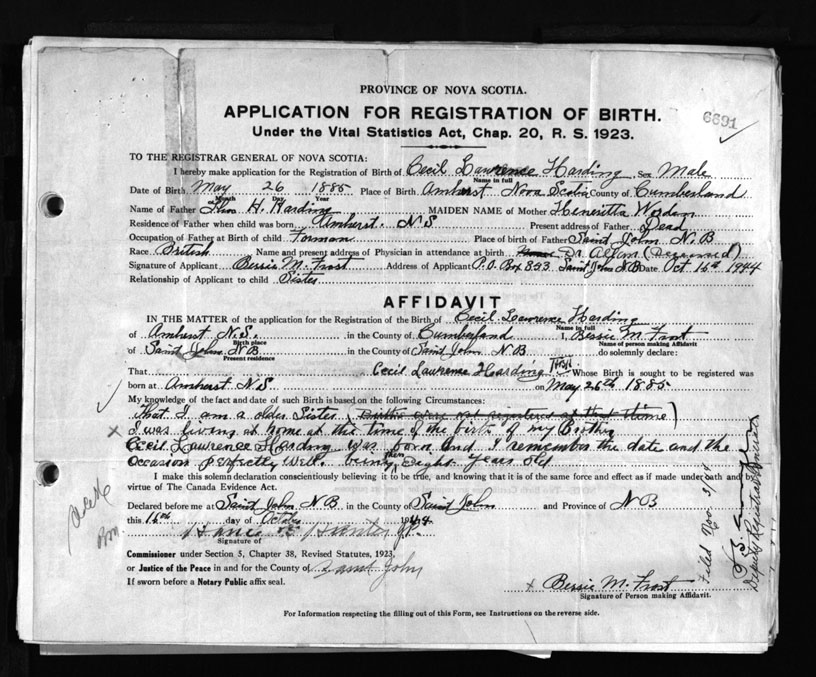 PROVINCE OF NOVA SCOTIA.
APPLICATION FOR REGISTRATION OF BIRTH.
6691
Under the Vital Statistics Act, Chap. 20, R. S. 1923.
TO THE REGISTRAR GENERAL OF NOVA SCOTIA:
I hereby make application for the Registration of Birth of Cecil Lawrence Harding Sex Male
Name in full
Date of Birth May 26 1885 Place of Birth Amherst Nova Scotia County of Cumberland
Month Day Year
Name of Father H. Harding MAIDEN NAME of Mother Henrietta
Residence of Father when child was born Amherst. N S Present address of Father Dead
Occupation of Father at Birth of child Forman Place of birth of Father Saint John N.B
Race British Name and present address of Physician in attendance at birth Dr. (Deceased)
Signature of Applicant Bessie M. Frost Address of Applicant P.O. Box 853 Saint John N B Date Oct 16th 1944
Relationship of Applicant to child Sister
AFFIDAVIT
IN THE MATTER of the application for the Registration of the Birth of Cecil Lawrence Harding
Name in full
of Amherst N.S. in the County of Cumberland I, Bessie M Frost
Birth place Name of person making Affidavit
of Saint John NB in the County of Saint John N B do solemnly declare:
Present residence
That Cecil Lawrence Harding Whose Birth is sought to be registered was
born at Amherst N S on May 26th 1885
My knowledge of the fact and date of such Birth is based on the following Circumstances:
That I am a older Sister (Births were not registered at that time)
x I was living at home at the time of the birth of my Brother
Cecil Lawrence Harding was born and I remember the date and the
Occasion perfectly well. being then Eight years old
I make this solemn declaration conscientiously believing it to be true, and knowing that it is of the same force and effect as if made under oath and by
virtue of The Canada Evidence Act.
Declared before me at Saint John N B in the County of Saint John and Province of N B
this 16th day of October 1944
Signature of
Commissioner under Section 5, Chapter 38, Revised Statutes, 1923,
or Justice of the Peace in and for the County of Saint John
If sworn before a Notary Public affix seal.
x Bessie M. Frost
Signature of Person making Affidavit.
For Information respecting the filling out of this Form, see Instructions on the reverse side.
Filed Nov. 3/44
Deputy Registrar General